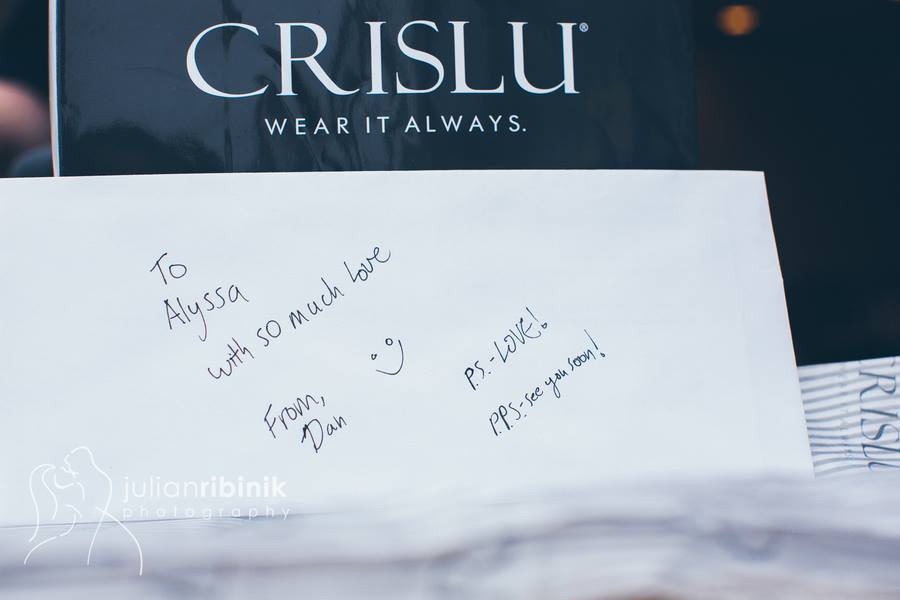 CRISLU®
WEAR IT ALWAYS.
To
Alyssa
with so much love
From,
Dan
P.S.-LOVE!
P.P.S-see you soon!
RISLU
julianribinik
photography